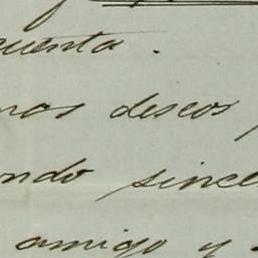 cuenta.
nos deseos
ndo since
amigo y